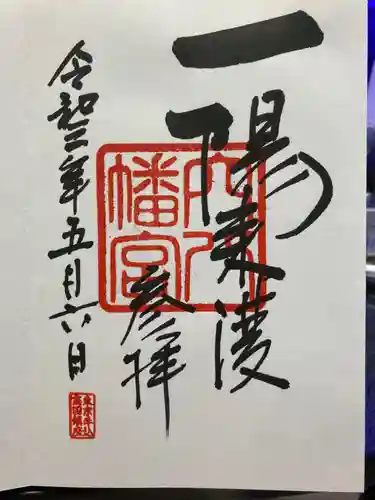 一陽来復
参拝
令和三年五月六日
穴八幡宮